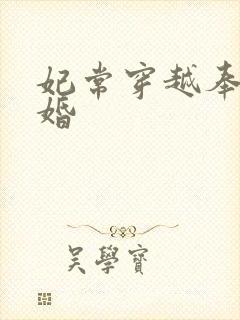 妃常穿越奉
婚
吴學寶